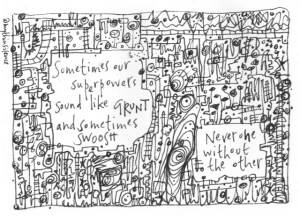 Sometimes our
superpowers
sound like GRUNT
and sometimes
SWOOSH
Never one
without
the other